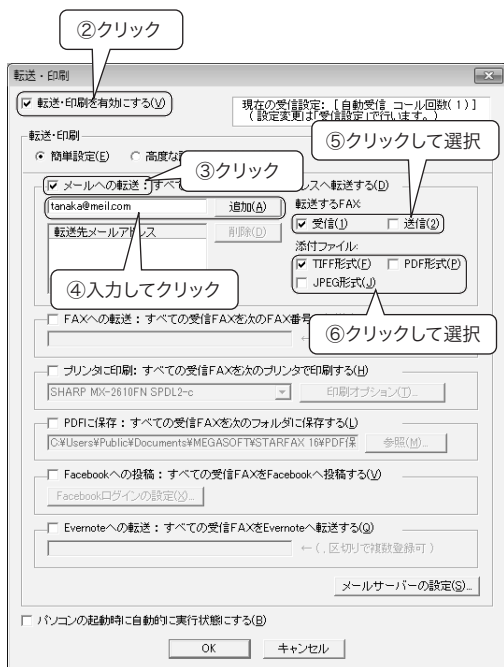 ②クリック
転送・印刷
転送・印刷を有効にする(V)
現在の受信設定: [自動受信 コール回数(1)]
(設定変更は「受信設定」で行います。)
転送・印刷
⑤クリックして選択
簡単設定(E)
高度な
③クリック
メールへの転送：すべて
レスへ転送する(D)
tanaka@meil.com
追加(A)
転送するFAX:
転送先メールアドレス
削除(D)
受信(1)
送信(2)
添付ファイル:
④入力してクリック
TIFF形式(F)
PDF形式(P)
JPEG形式(J)
FAXへの転送：すべての受信FAXを次のFAX番号
⑥クリックして選択
プリンタに印刷: すべての受信FAXを次のプリンタで印刷する(H)
SHARP MX-2610FN SPDL2-c
印刷オプション(T)...
PDFに保存：すべての受信FAXを次のフォルダに保存する(L)
C:¥Users¥Public¥Documents¥MEGASOFT¥STARFAX 16¥PDF保
参照(M)...
Facebookへの投稿：すべての受信FAXをFacebookへ投稿する(V)
Facebookログインの設定(X)...
Evernoteへの転送：すべての受信FAXをEvernoteへ転送する(Q)
←(,区切りで複数登録可)
メールサーバーの設定(S)...
パソコンの起動時に自動的に実行状態にする(B)
OK
キャンセル